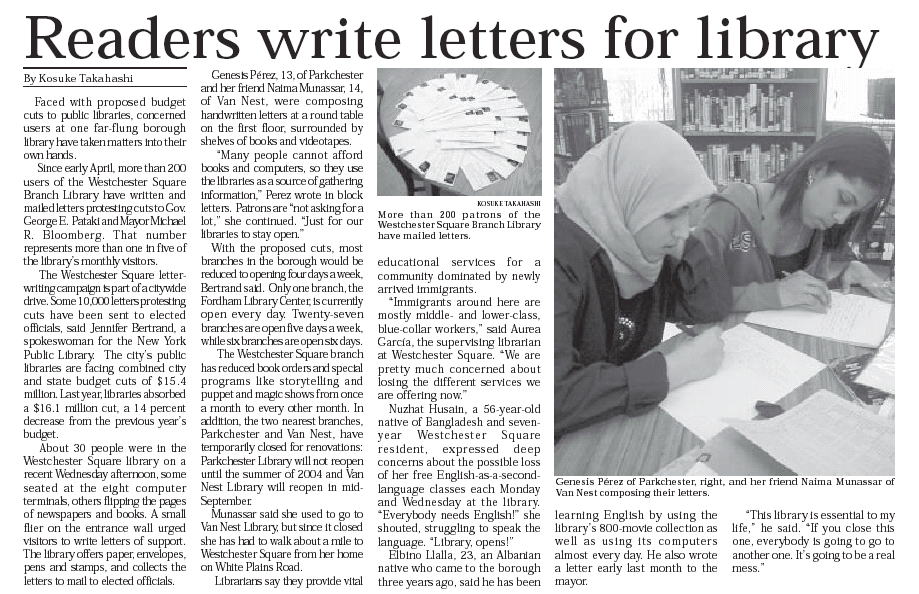 Readers write letters for library
By Kosuke Takahashi
Faced with proposed budget
cuts to public libraries, concerned
users at one far-flung borough
library have taken matters into their
own hands.
Since early April, more than 200
users of the Westchester Square
Branch Library have written and
mailed letters protesting cuts to Gov.
George E. Pataki and Mayor Michael
R. Bloomberg. That number
represents more than one in five of
the library's monthly visitors.
The Westchester Square letter-
writing campaign is part of a citywide
drive. Some 10,000 letters protesting
cuts have been sent to elected
officials, said Jennifer Bertrand, a
spokeswoman for the New York
Public Library. The city's public
libraries are facing combined city
and state budget cuts of $15.4
million. Last year, libraries absorbed
a $16.1 million cut, a 14 percent
decrease from the previous year's
budget.
About 30 people were in the
Westchester Square library on a
recent Wednesday afternoon, some
seated at the eight computer
terminals, others flipping the pages
of newspapers and books. A small
flier on the entrance wall urged
visitors to write letters of support.
The library offers paper, envelopes,
pens and stamps, and collects the
letters to mail to elected officials.
Genesis Pérez, 13, of Parkchester
and her friend Naima Munassar, 14,
of Van Nest, were composing
handwritten letters at a round table
on the first floor, surrounded by
shelves of books and videotapes.
"Many people cannot afford
books and computers, so they use
the libraries as a source of gathering
information," Perez wrote in block
letters. Patrons are "not asking for a
lot," she continued. "Just for our
libraries to stay open."
With the proposed cuts, most
branches in the borough would be
reduced to opening four days a week,
Bertrand said. Only one branch, the
Fordham Library Center, is currently
open every day. Twenty-seven
branches are open five days a week,
while six branches are open six days.
The Westchester Square branch
has reduced book orders and special
programs like storytelling and
puppet and magic shows from once
a month to every other month. In
addition, the two nearest branches,
Parkchester and Van Nest, have
temporarily closed for renovations:
Parkchester Library will not reopen
until the summer of 2004 and Van
Nest Library will reopen in mid-
September.
Munassar said she used to go to
Van Nest Library, but since it closed
she has had to walk about a mile to
Westchester Square from her home
on White Plains Road.
Librarians say they provide vital
KOSUKE TAKAHASHI
More than 200 patrons of the
Westchester Square Branch Library
have mailed letters.
educational services for a
community dominated by newly
arrived immigrants.
"Immigrants around here are
mostly middle- and lower-class,
blue-collar workers," said Aurea
García, the supervising librarian
at Westchester Square. "We are
pretty much concerned about
losing the different services we
are offering now."
Nuzhat Husain, a 56-year-old
native of Bangladesh and seven-
year Westchester Square
resident, expressed deep
concerns about the possible loss
of her free English-as-a-second-
language classes each Monday
and Wednesday at the library.
"Everybody needs English!" she
shouted, struggling to speak the
language. "Library, opens!"
Elbino Llalla, 23, an Albanian
native who came to the borough
three years ago, said he has been
Genesis Pérez of Parkchester, right, and her friend Naima Munassar of
Van Nest composing their letters.
learning English by using the
library's 800-movie collection as
well as using its computers
almost every day. He also wrote
a letter early last month to the
mayor.
"This library is essential to my
life," he said. "If you close this
one, everybody is going to go to
another one. It's going to be a real
mess."